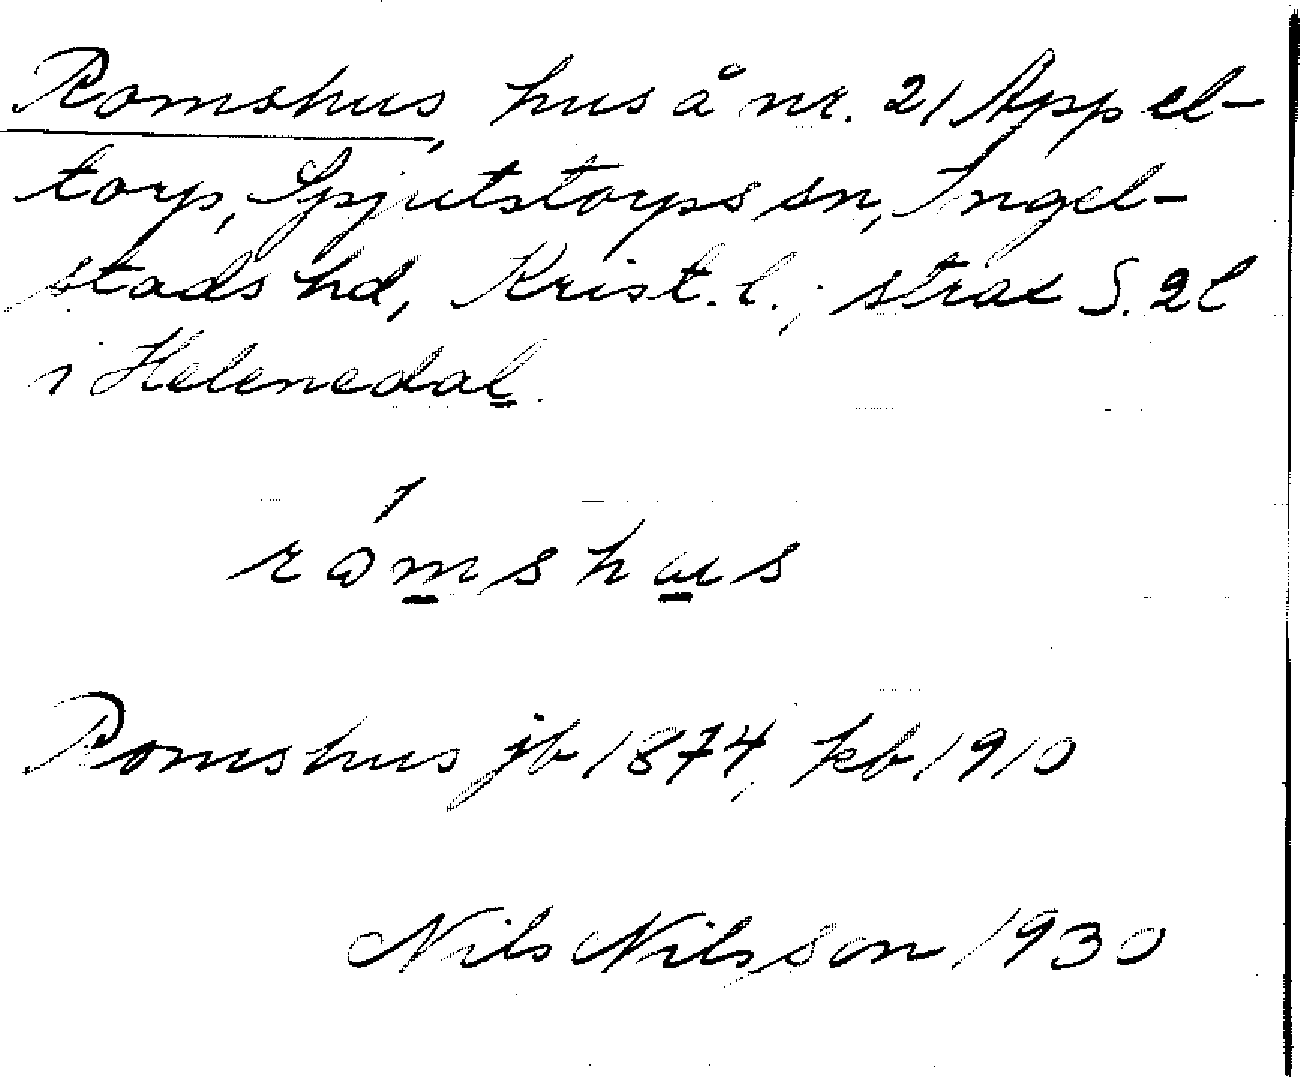 Romshus, hus å nr. 21 Appel-
torp, Spjutstorps sn, Ingel-
stads hd, Krist. l.; strax S. 2 l
i Helenedal.
råmshus
Romshus jb 1874, kb 1910
Nils Nilsson 1930